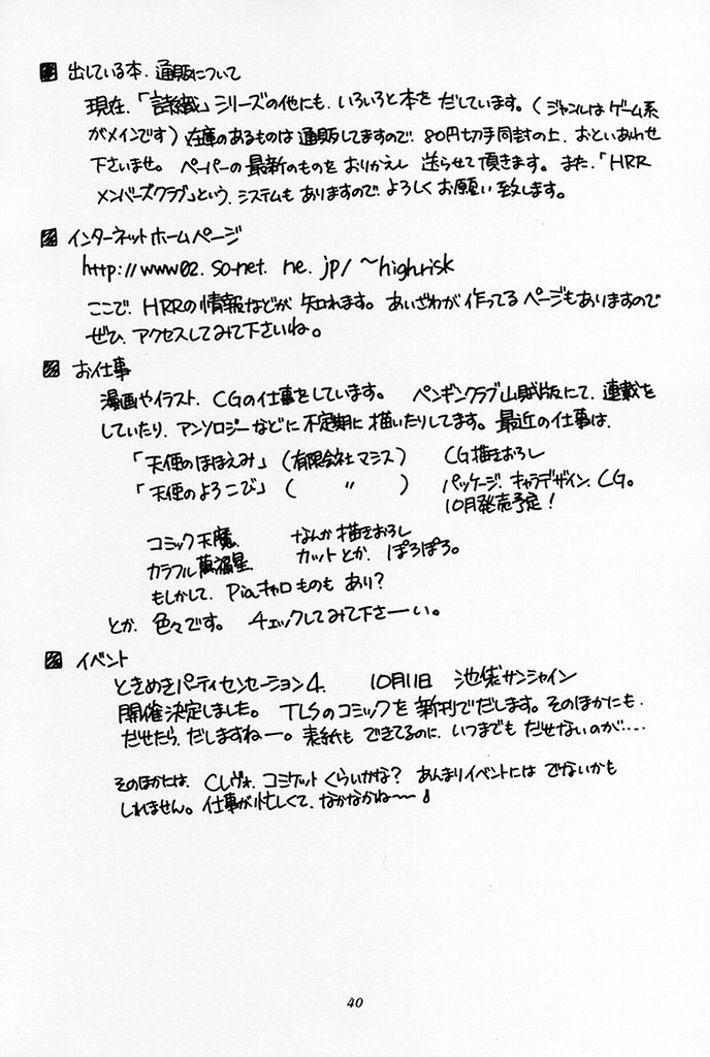 出している本、通販について
現在、「詩織」シリーズの他にも、いろいろと本を だしています。(ジャンルは ゲーム系
がメインです) 在庫のあるものは 通販してますので、80円切手同封の上、おといあわせ
下さいませ。 ペーパーの 最新のものを おりかえし 送らせて頂きます。 また、「HRR
メンバーズクラブ」という、システムも ありますので、よろしく お願い 致します。
インターネット ホームページ
http://www02.so-net.ne.jp/~highrisk
ここで、HRRの情報などが 知れます。 あいざわが 作ってる ページもありますので
ぜひ、アクセスしてみて下さいね。
お仕事
漫画やイラスト、CGの仕事をしています。 ペンギンクラブ山賊版にて、連載を
していたり、アンソロジーなどに 不定期に 描いたりしてます。 最近の仕事は、
「天使のほほえみ」 (有限会社マシス) CG描きおろし
「天使のよろこび」 ( 〃 ) パッケージ、キャラデザイン、CG。
10月発売予定!
コミック天魔、 なんか描きおろし
カラフル萬福星、 カットとか、ぽろぽろ。
もしかして、Piaキャロものも あり?
とか、色々です。 チェックしてみて下さーい。
イベント
ときめきパーティセンセーション4、 10月11日 池袋サンシャイン
開催決定しました。 TLSのコミックを 新刊でだします。そのほかにも、
だせたら、だしますねー。 表紙も できてるのに、いつまでも だせないのが‥‥
そのほかには、Cレヴォ、コミケット くらいかな? あんまりイベントには でないかも
しれません。仕事が忙しくて、なかなかね〜〜
40